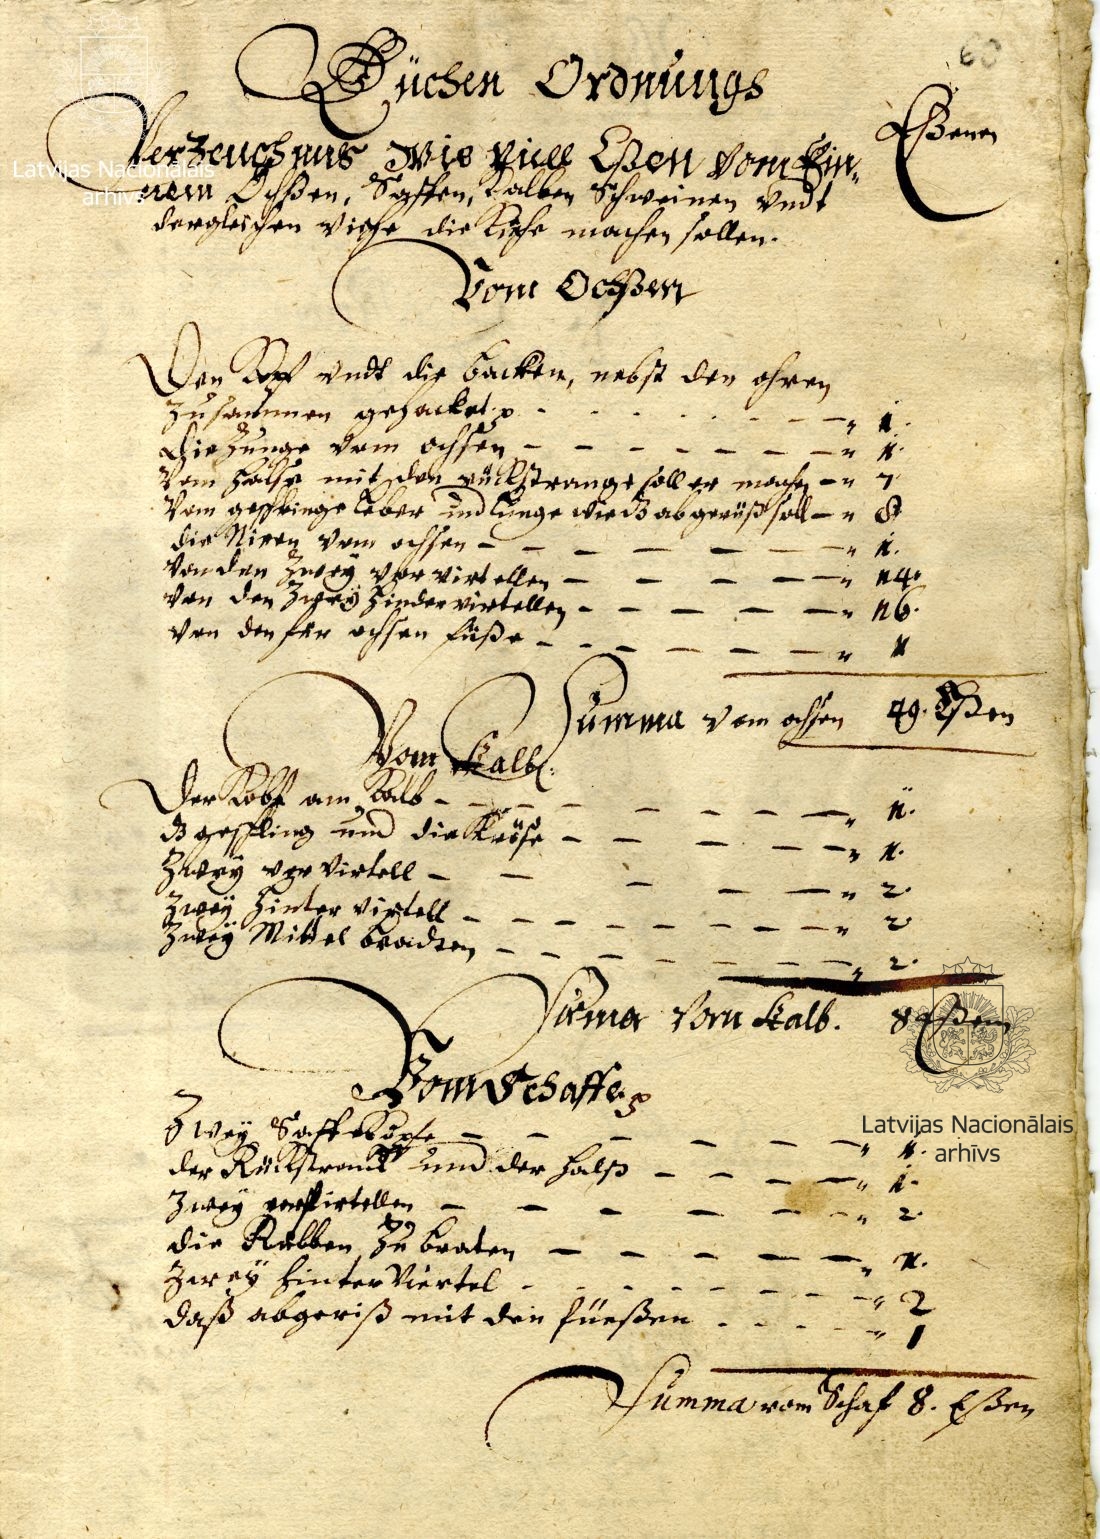 60
Küchen Ordnungs
Verzeuchnus wie viell Eßen vom Ein¬
Eßenn
nem Ochßen, Saffen, Kalben Schweinen vndt
dergleichen viehe die Kühe machen sollen.
Vom Ochßen
Den Kopf vndt die backen, nebst den ohren
zusammen gehacket - - - - „ 1.
die Zunge vom ochsen - - - - „ 1.
Vom halse mit den rückstrange soll er machen - „ 7
Vom geschlinge leber und lunge wie dz abgerüß soll - „ 8
die Niren vom ochsen - - - - „ 1.
Von den Zweÿ vor virtellen - - - - „ 14.
von den Zweÿ hindervirtellen - - - - „ 16.
von den fier ochsen füße - - - - „ 1
Summa vom ochsen 49. Eßen
Vom Kalb.
Der Kobf am Kalb - - - - „ 1.
dz geschling und die Kröse - - - - „ 1.
Zweÿ vor virtell - - - - „ 2.
Zweÿ hinter virtell - - - - „ 2
Zweÿ Mittel bradten - - - - „ 2.
Suma Vom Kalb. 8 Eßen
Vom Schaffe
Zweÿ Saffkköpfe - - - - „ 1.
der Rückstranck und der halß - - - - „ 1.
Zweÿ virtellen - - - - „ 2.
die Rübben Zu braten - - - - „ 1.
Zweÿ hinter Viertel - - - - „ 2
daß abgeriß mit den füeßen - - - - „ 1
Summa vom Schaf 8. Eßen
Latvijas Nacionālais
arhīvs
Latvijas Nacionālais
arhīvs